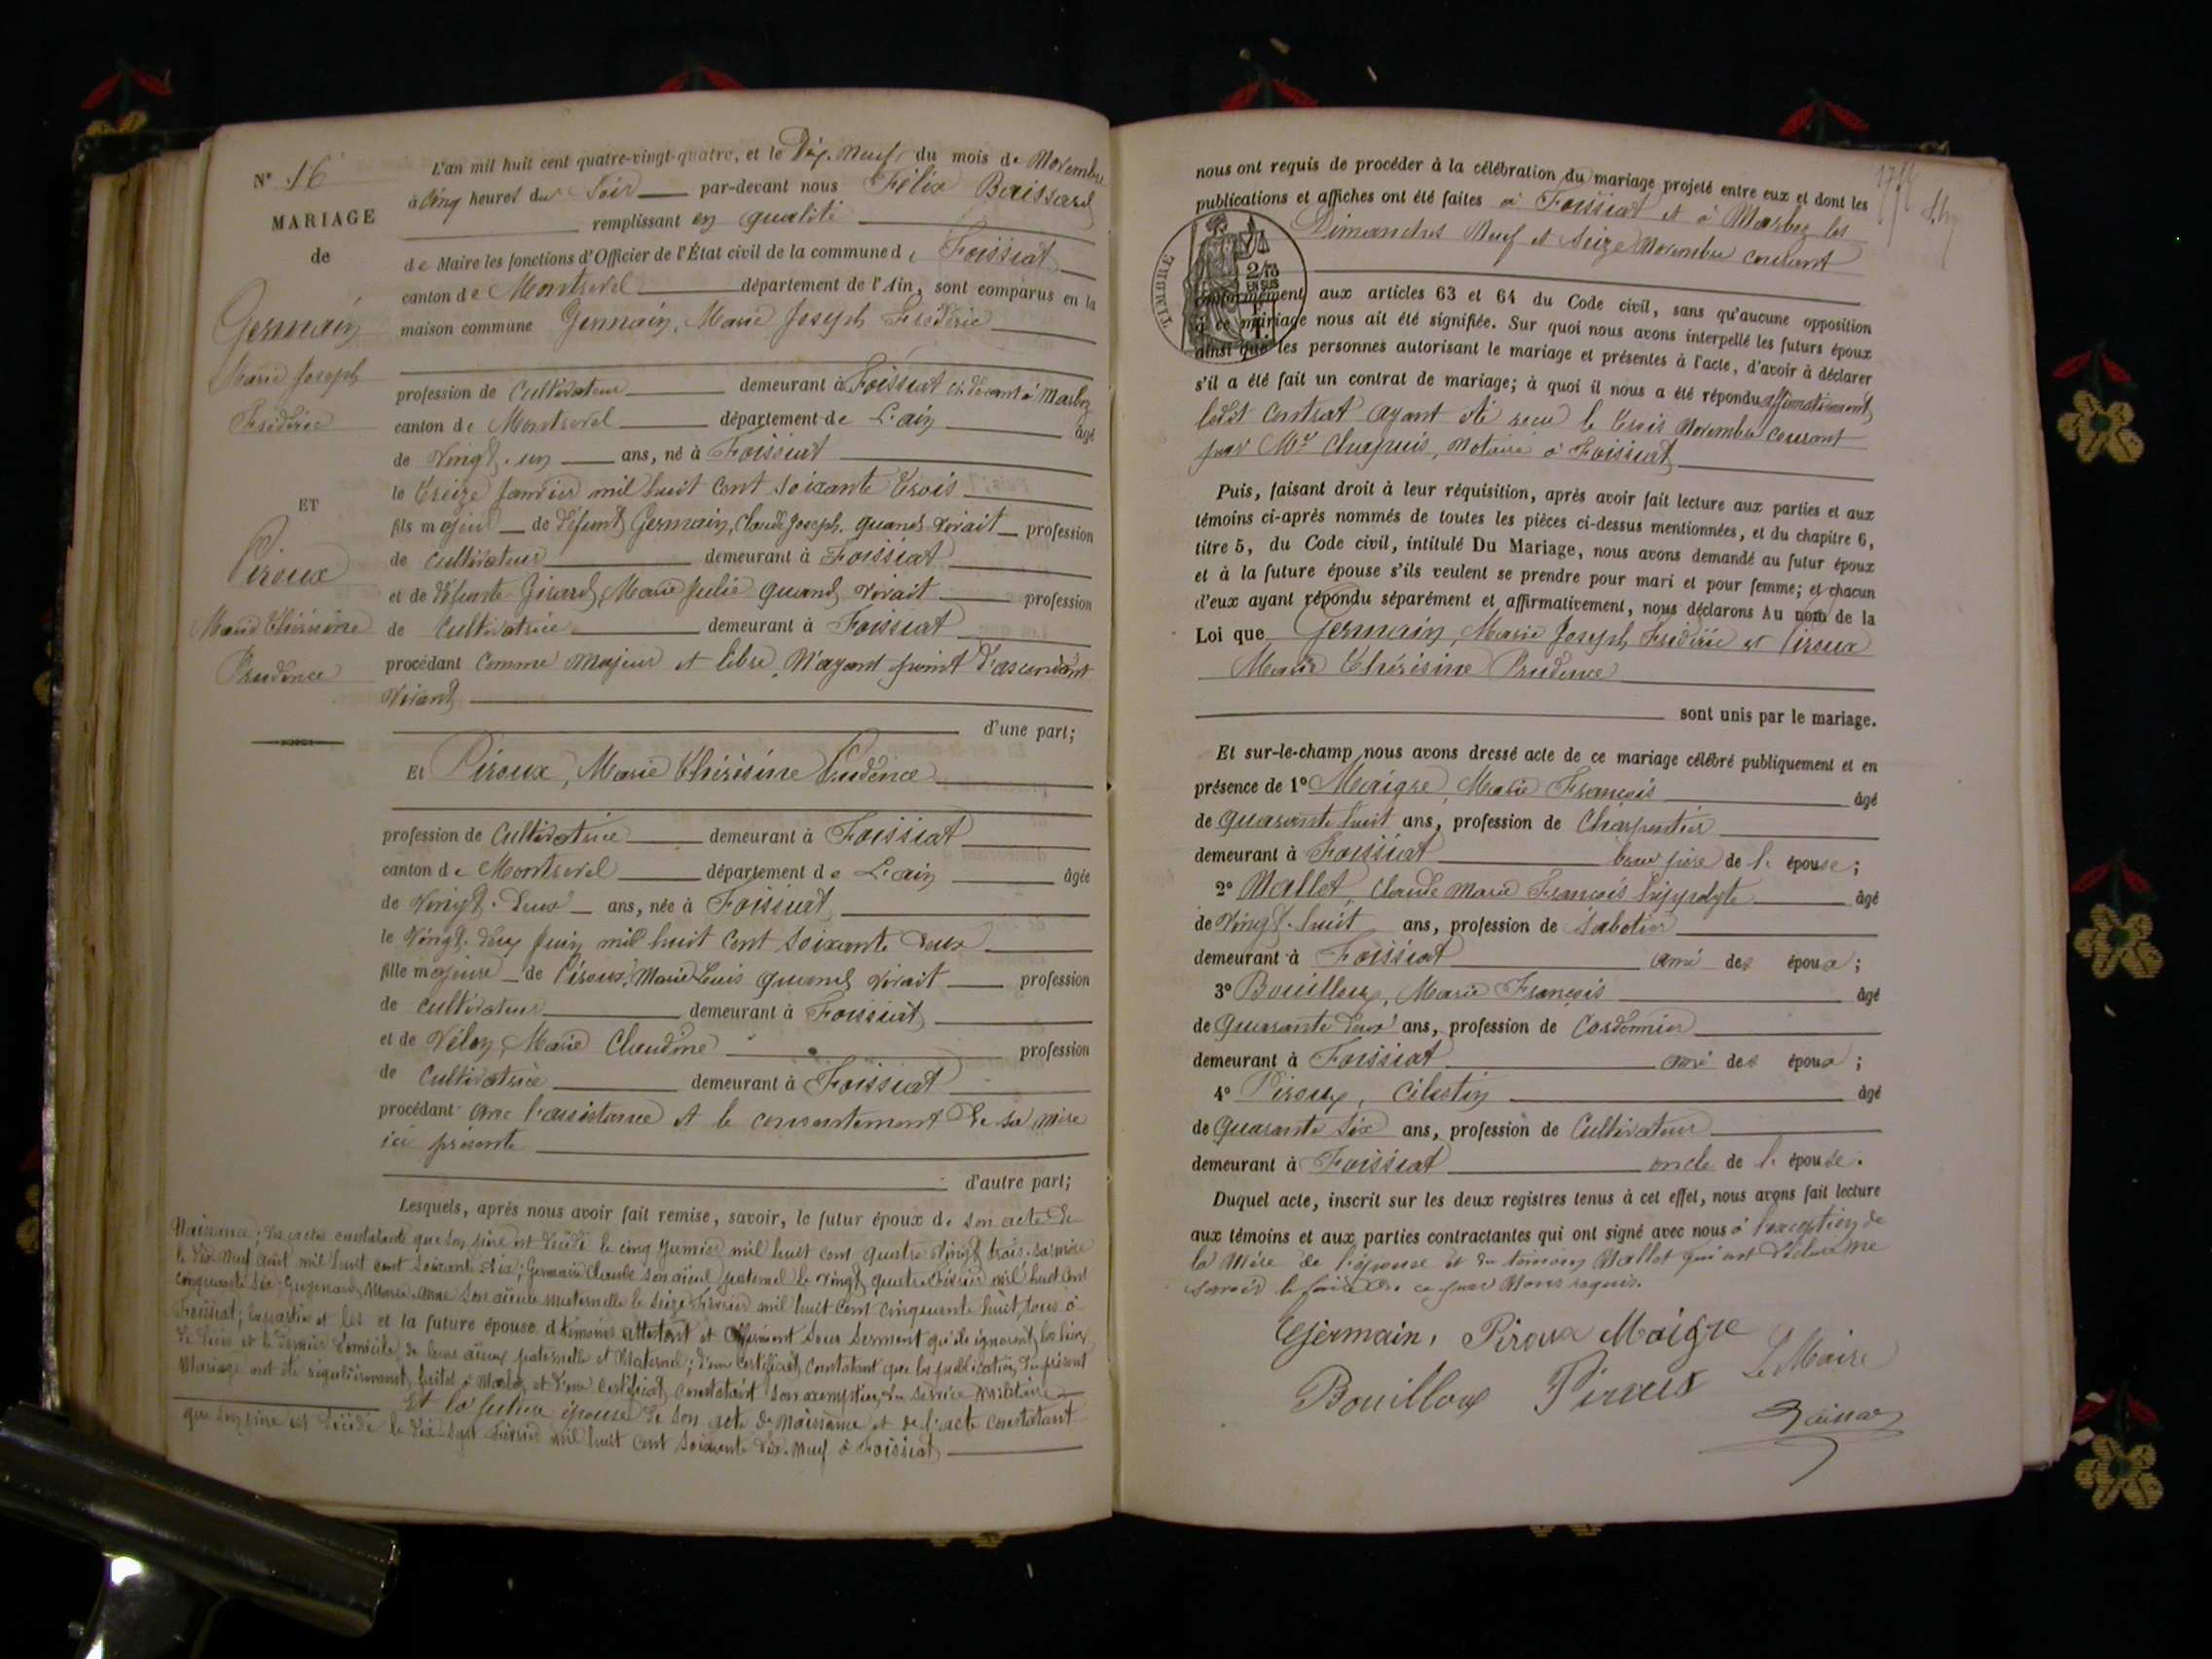 N° 16
MARIAGE
de
Germain
Marie Joseph
Frédéric
ET
Piroux
Marie Thérésine
Prudence
L'an mil huit cent quatre-vingt-quatre, et le Dix-Neuf du mois de Novembre
à Cinq heures du Soir par-devant nous Félix Baissard
remplissant en qualité
de Maire les fonctions d'Officier de l'État civil de la commune de Foissiat
canton de Montrevel département de l'Ain, sont comparus en la
maison commune Germain, Marie Joseph Frédéric
profession de Cultivateur demeurant à Foissiat ci-devant à Marboz
canton de Montrevel département de L'ain âgé
de Vingt-un ans, né à Foissiat
le treize Janvier mil huit cent soixante trois
fils majeur de défunt Germain, Claude Joseph, quand vivait profession
de Cultivateur demeurant à Foissiat
et de défunte Girard, Marie Julie quand vivait profession
de Cultivatrice demeurant à Foissiat
procédant comme majeur et libre, n'ayant point d'ascendant
vivant
d'une part;
Et Piroux, Marie Thérésine Prudence
profession de Cultivatrice demeurant à Foissiat
canton de Montrevel département de L'ain âgée
de Vingt-deux ans, née à Foissiat
le Vingt-deux Juin mil huit cent soixante deux
fille majeure de Piroux, Marie Louis quand vivait profession
de cultivateur demeurant à Foissiat
et de Vélon, Marie Claudine profession
de Cultivatrice demeurant à Foissiat
procédant avec l'assistance et le consentement de sa mère
ici présente
d'autre part;
Lesquels, après nous avoir fait remise, savoir, le futur époux de son acte de
Naissance; des actes constatants que son père est décédé le cinq Janvier mil huit cent quatre vingt trois, sa mère
le dix neuf août mil huit cent soixante dix; Germain Claude son aïeul paternel le vingt quatre Février mil huit cent
cinquante six; Marie-Anne son aïeule maternelle le seize Février mil huit cent cinquante huit, tous à
Foissiat; les parties et les et la future épouse témoins attestent et affirment sous serment qu'ils ignorent les lieux
de décès et le dernier domicile de leurs aïeux paternelle et Maternel; d'un Certificat constatant que les publications du présent
Mariage ont été régulièrement faites à Marboz et d'un certificat constatant son exemption du service militaire
Et la future épouse de son acte de Naissance et de l'acte constatant
que son père est décédé le dix-sept Février mil huit cent soixante dix-neuf à Foissiat
nous ont requis de procéder à la célébration du mariage projeté entre eux et dont les
publications et affiches ont été faites à Foissiat et à Marboz les
Dimanches Neuf et Seize Novembre courant
TIMBRE
conformément aux articles 63 et 64 du Code civil, sans qu'aucune opposition
à ce mariage nous ait été signifiée. Sur quoi nous avons interpellé les futurs époux
ainsi que les personnes autorisant le mariage et présentes à l'acte, d'avoir à déclarer
s'il a été fait un contrat de mariage; à quoi il nous a été répondu affirmativement,
ledit contrat ayant été reçu le trois Novembre courant
par Me Chapuis, Notaire à Foissiat
Puis, faisant droit à leur réquisition, après avoir fait lecture aux parties et aux
témoins ci-après nommés de toutes les pièces ci-dessus mentionnées, et du chapitre 6,
titre 5, du Code civil, intitulé Du Mariage, nous avons demandé au futur époux
et à la future épouse s'ils veulent se prendre pour mari et pour femme; et chacun
d'eux ayant répondu séparément et affirmativement, nous déclarons Au nom de la
Loi que Germain, Marie Joseph Frédéric et Piroux
Marie Thérésine Prudence
sont unis par le mariage.
Et sur-le-champ nous avons dressé acte de ce mariage célébré publiquement et en
présence de 1° Maigre, Marie François âgé
de Quarante huit ans, profession de Charpentier
demeurant à Foissiat beau père de l'épouse;
2° Mallet, Claude Marie François hippolyte âgé
de Vingt-huit ans, profession de Sabotier
demeurant à Foissiat ami des époux;
3° Bouilloux, Marie François âgé
de Quarante deux ans, profession de Cordonnier
demeurant à Foissiat ami des époux;
4° Piroux, Célestin âgé
de Quarante six ans, profession de Cultivateur
demeurant à Foissiat oncle de l'épouse.
Duquel acte, inscrit sur les deux registres tenus à cet effet, nous avons fait lecture
aux témoins et aux parties contractantes qui ont signé avec nous à l'exception de
la Mère de l'épouse et du témoin Mallet qui ont déclaré ne
savoir le faire de ce par Nous requis.
Germain, Piroux Maigre
Bouilloux Piroux Le Maire
Baissard